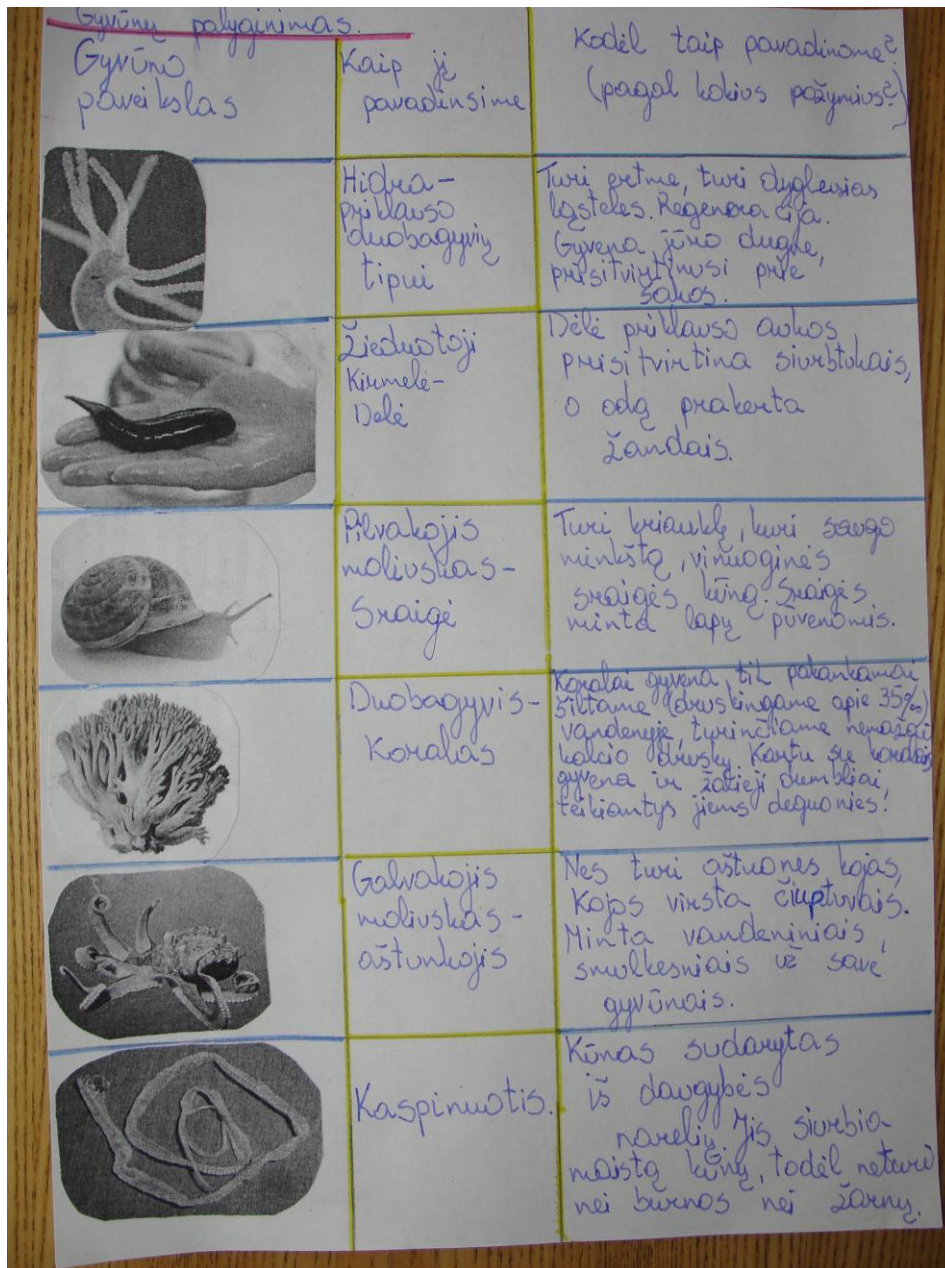 Gyvūnų palyginimas.
Gyvūno
paveikslas
Kaip jį
pavadinsime
Kodėl taip pavadinome?
(pagal kokius požymius?)
Hidra-
priklauso
duobagyvių
tipui
Turi ertmę, turi dygliasias
ląsteles. Regeneracija.
Gyvena jūro dugne,
prisitvirtinusi prie
šakos.
Žieduotoji
Kirmelė-
Dėlė
Dėlė priklauso aukos
prisitvirtina siurbtukais,
o odą prakerta
žandais.
Pilvakojis
moliuskas-
Sraigė
Turi kriauklę, kuri saugo
minkštą, vinuoginės
sraigės kūną. Sraigės
minta lapų pūvenomis.
Duobagyvis-
Koralas
Koralai gyvena tik pakankamai
šiltame (druskingame apie 35‰)
vandenyje, turinčiame nemažai
kalcio druskų. Kartu su koralais
gyvena ir žalieji dumbliai,
teikiantys jiems deguonies.
Galvakojis
moliuskas-
aštunkojis
Nes turi aštuones kojas,
Kojos virsta čiuptuvais.
Minta vandeniniais,
smulkesniais už save
gyvūnais.
Kaspinuotis.
Kūnas sudarytas
iš daugybės
narelių. Jis siurbia
maistą kūnų, todėl neturi
nei burnos nei žarnų.